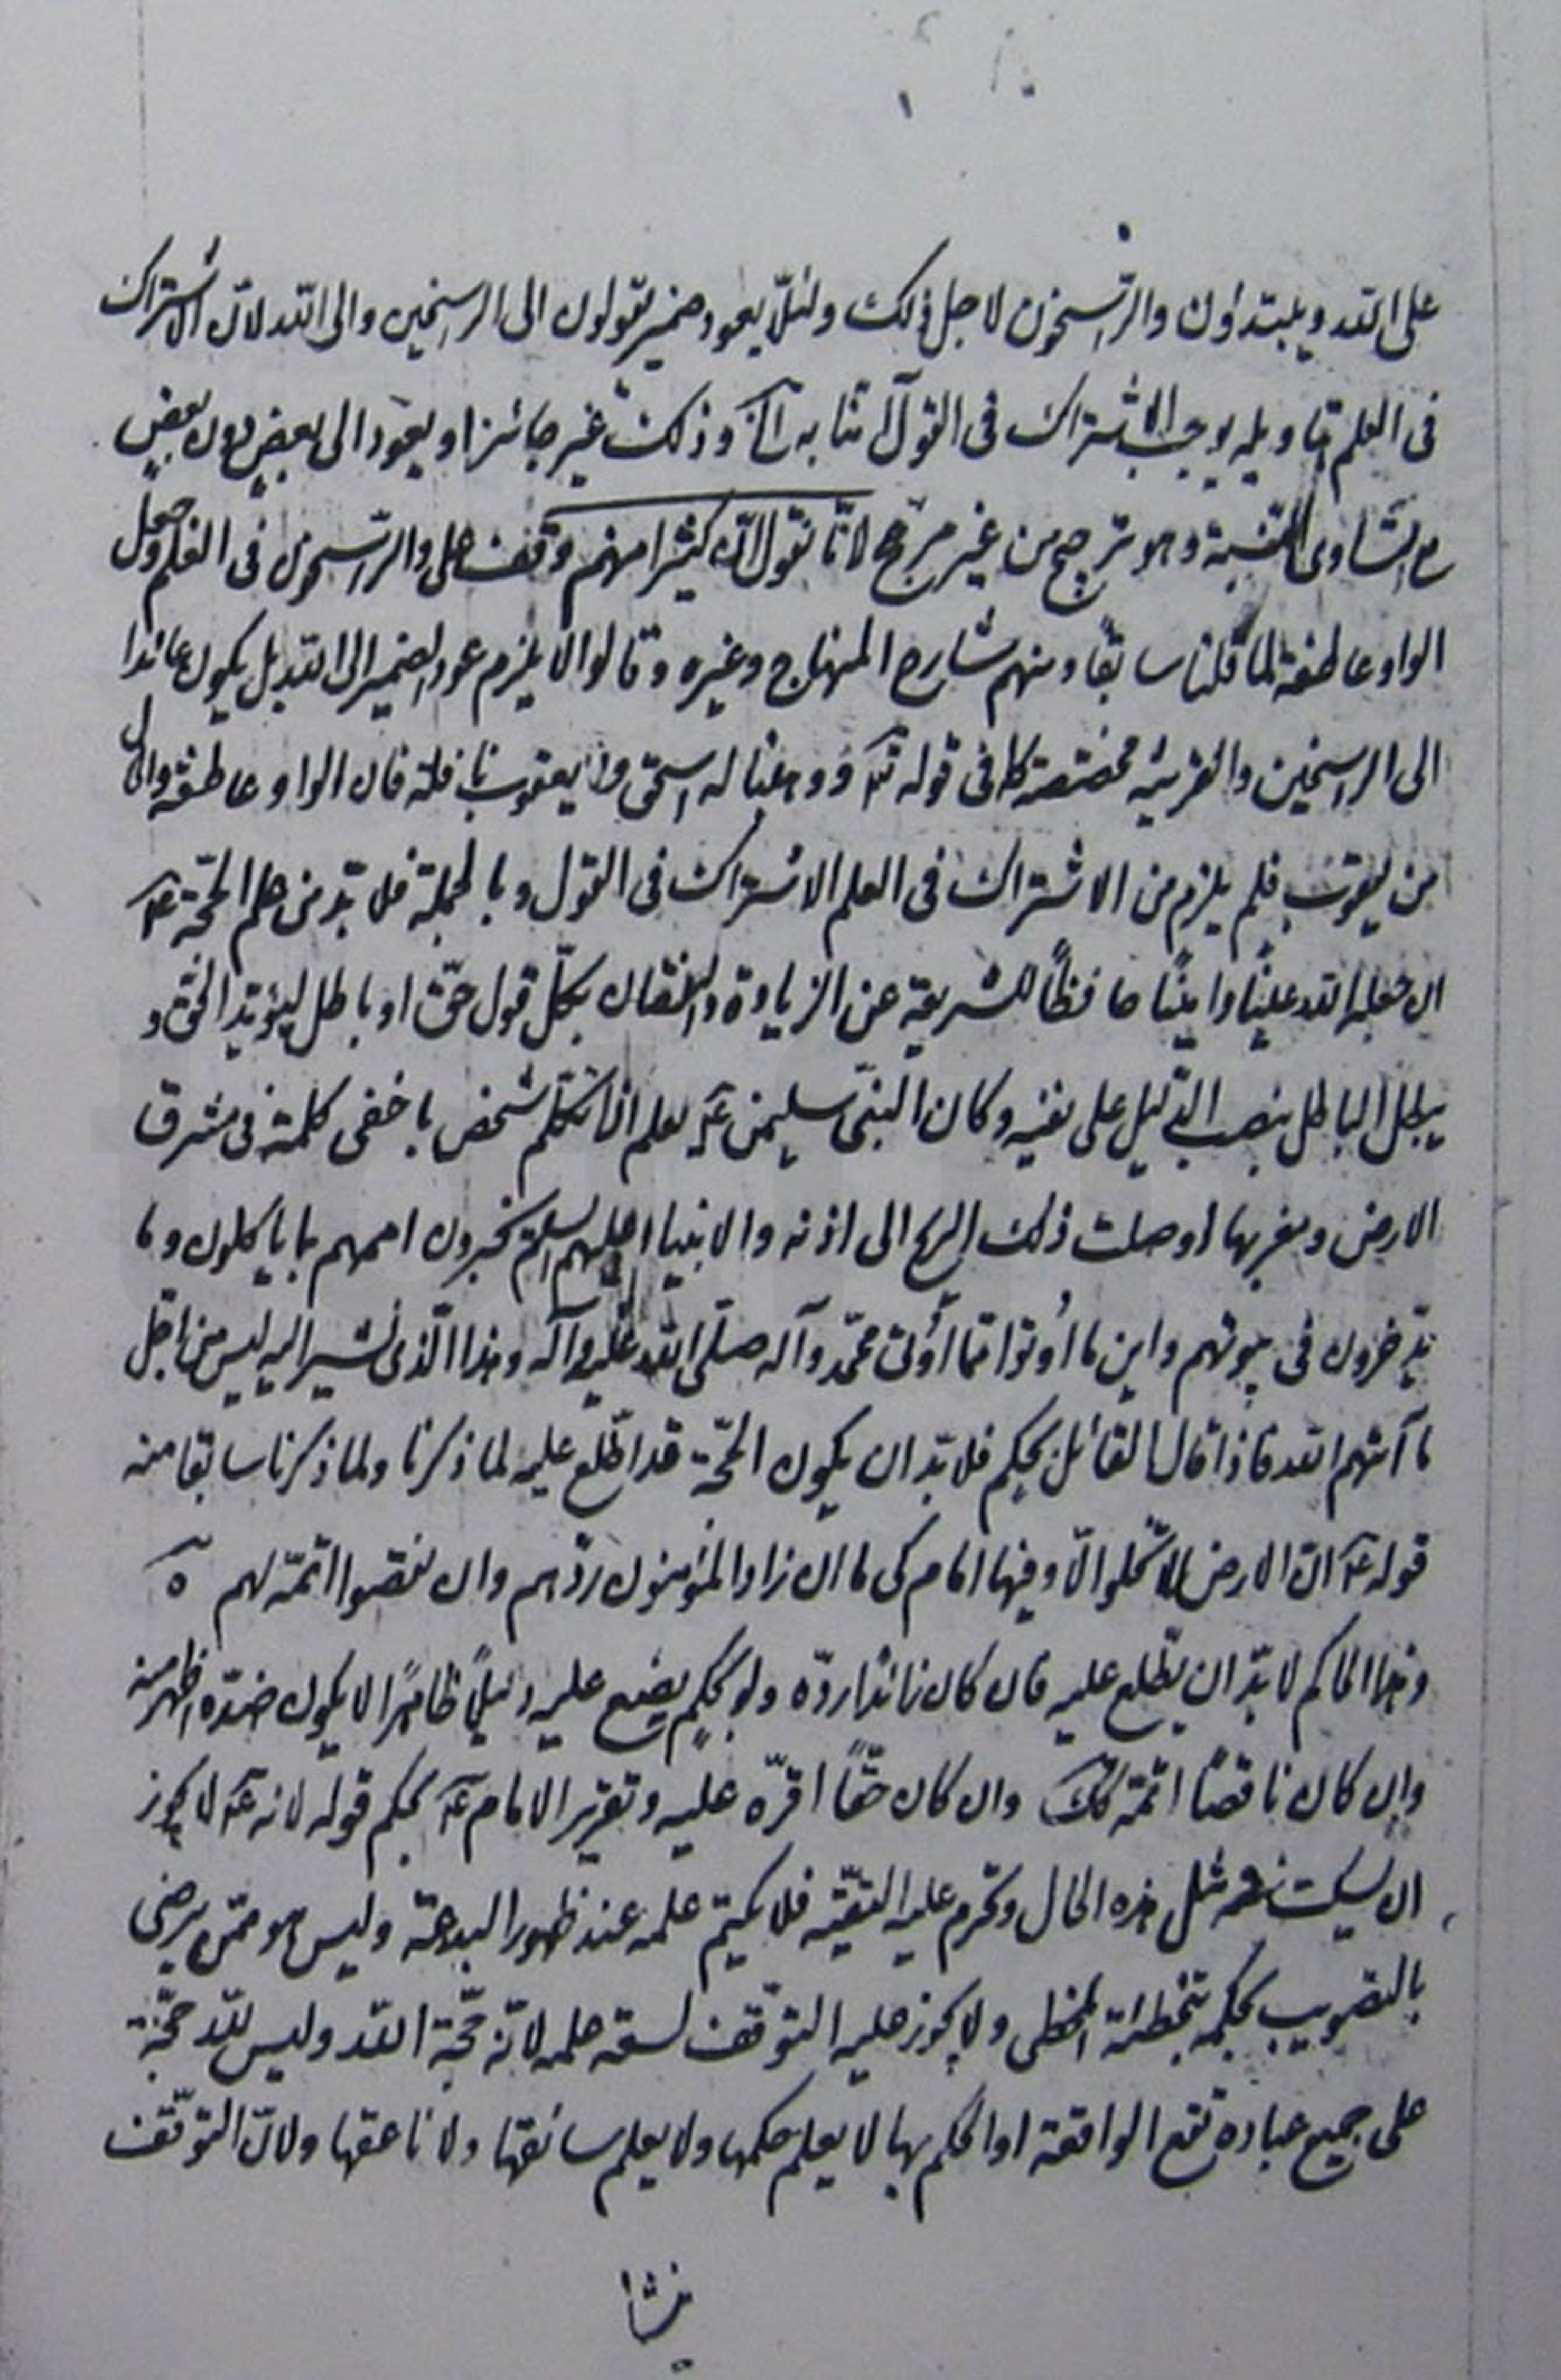 على الله ويبتدؤن والرّاسخون لاجل ذلك ولئلّا يعود ضمير يقولون الى الراسخين والى الله لانّ الاشتراك
فى العلم بتاويله يوجب الاشتراك فى القول آمنا به آه وذلك غير جائز او يعود الى بعض دون بعض
مع تساوى النسبة وهو ترجيح من غير مرجّح لانّا نقول انّ كثيرا منهم وقف على والرّاسخون فى العلم وجعل
الواو عاطفة لما قلنا سابقًا ومنهم شارح المنهاج وغيره وقالوا لا يلزم عود الضمير الى الله بل يكون عائدا
الى الراسخين والقرينه مخصّصة كما فى قوله تع ووهبنا له اسحق ويعقوب نافلة فان الواو عاطفة والحال
من يعقوب فلم يلزم من الاشتراك فى العلم الاشتراك فى القول وبالجملة فلا بدّ من علم الحجّة ع
ان جعله الله علينا وامينًا حافظًا للشريعة عن الزيادة والنقصان بكلّ قول حقّ او باطل ليؤيّد الحق و
يبطل الباطل بنصب الدّليل على نفيه وكان النبىّ سليمن ع يعلم اذا تكلّم شخص باخفى كلمة فى مشرق
الارض ومغربها اوصلت ذلك الريح الى اذنه والانبياء عليهم السلم يخبرون اممهم بما ياكلون وما
يدّخرون فى بيوتهم واين ما أُوتوا ممّا أُوتى محمّد وآله صلّى الله عليه وآله وهذا الّذى نشير اليه ليس من اقل
ما آتيهم الله فاذا قال القائل بحكم فلا بدّ ان يكون الحجّة قد اطّلع عليه لما ذكرنا ولما ذكرنا سابقا من
قوله ع انّ الارض لا تخلوا الّا وفيها امام كى ما ان زاد المؤمنون ردّهم وان نقصوا اتمّه لهم ه
وهذا الحاكم لا بدّ ان يطّلع عليه فان كان زائدًا ردّه ولو بحكمٍ يضع عليه دليلًا ظاهرًا لا يكون ضدّه اظهر منه
وان كان ناقصًا اتمّه كك وان كان حقًّا اقرّه عليه وتقرير الامام ع بحكم قوله لانه ع لا يجوز
ان يسكت فى مثل هذه الحال وتحرم عليه التقيّه فلا يكتم علمه عند ظهور البدعة وليس هو ممّن يرضى
بالتصويب بحكمه بتخطئة المخطى ولا يجوز عليه التوقّف لسعة علمه لانّه حجّة الله وليس لله حجّة
على جميع عباده تقع الواقعة او الحكم بها لا يعلم حكمها ولا يعلم سائقها ولا ناعقها ولانّ التوقّف
ينشا